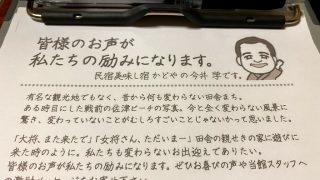 皆様のお声が
私たちの励みになります。
民宿美味し宿 かどやの今井 学です。
有名な観光地でもなく、昔から何も変わらない田舎まち。
ある時目にした戦前の佐津ビーチの写真。今と全く変わらない風景に
驚き、変わっていないことがむしろすごいことじゃないかって思いました。
「大将、また来たで」「女将さん、ただいまー」田舎の親せきの家に遊びに
来た時のように。私たちも変わらないお出迎えでありたい。
皆様のお声が私たちの励みになります。ぜひお喜びの声や当館スタッフへ